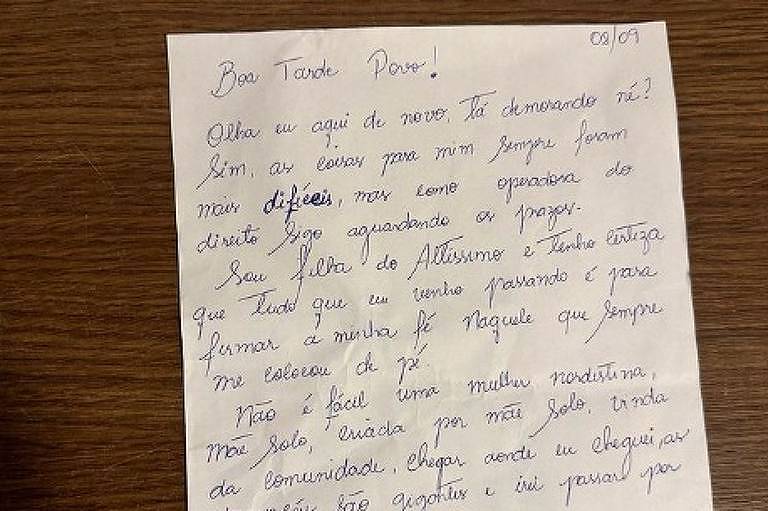 08/09
Boa Tarde Povo!
Olha eu aqui de novo, tá demorando né?
Sim, as coisas para mim sempre foram
mais difíceis, mas como operadora do
direito sigo aguardando os prazos.
Sou filha do Altíssimo e tenho certeza
que tudo que eu venho passando é para
firmar a minha fé Naquele que sempre
me colocou de pé.
Não é fácil uma mulher nordistina,
mãe solo, criada por mãe solo, vinda
da comunidade, chegar aonde eu cheguei, as
são gigantes e irei passar por